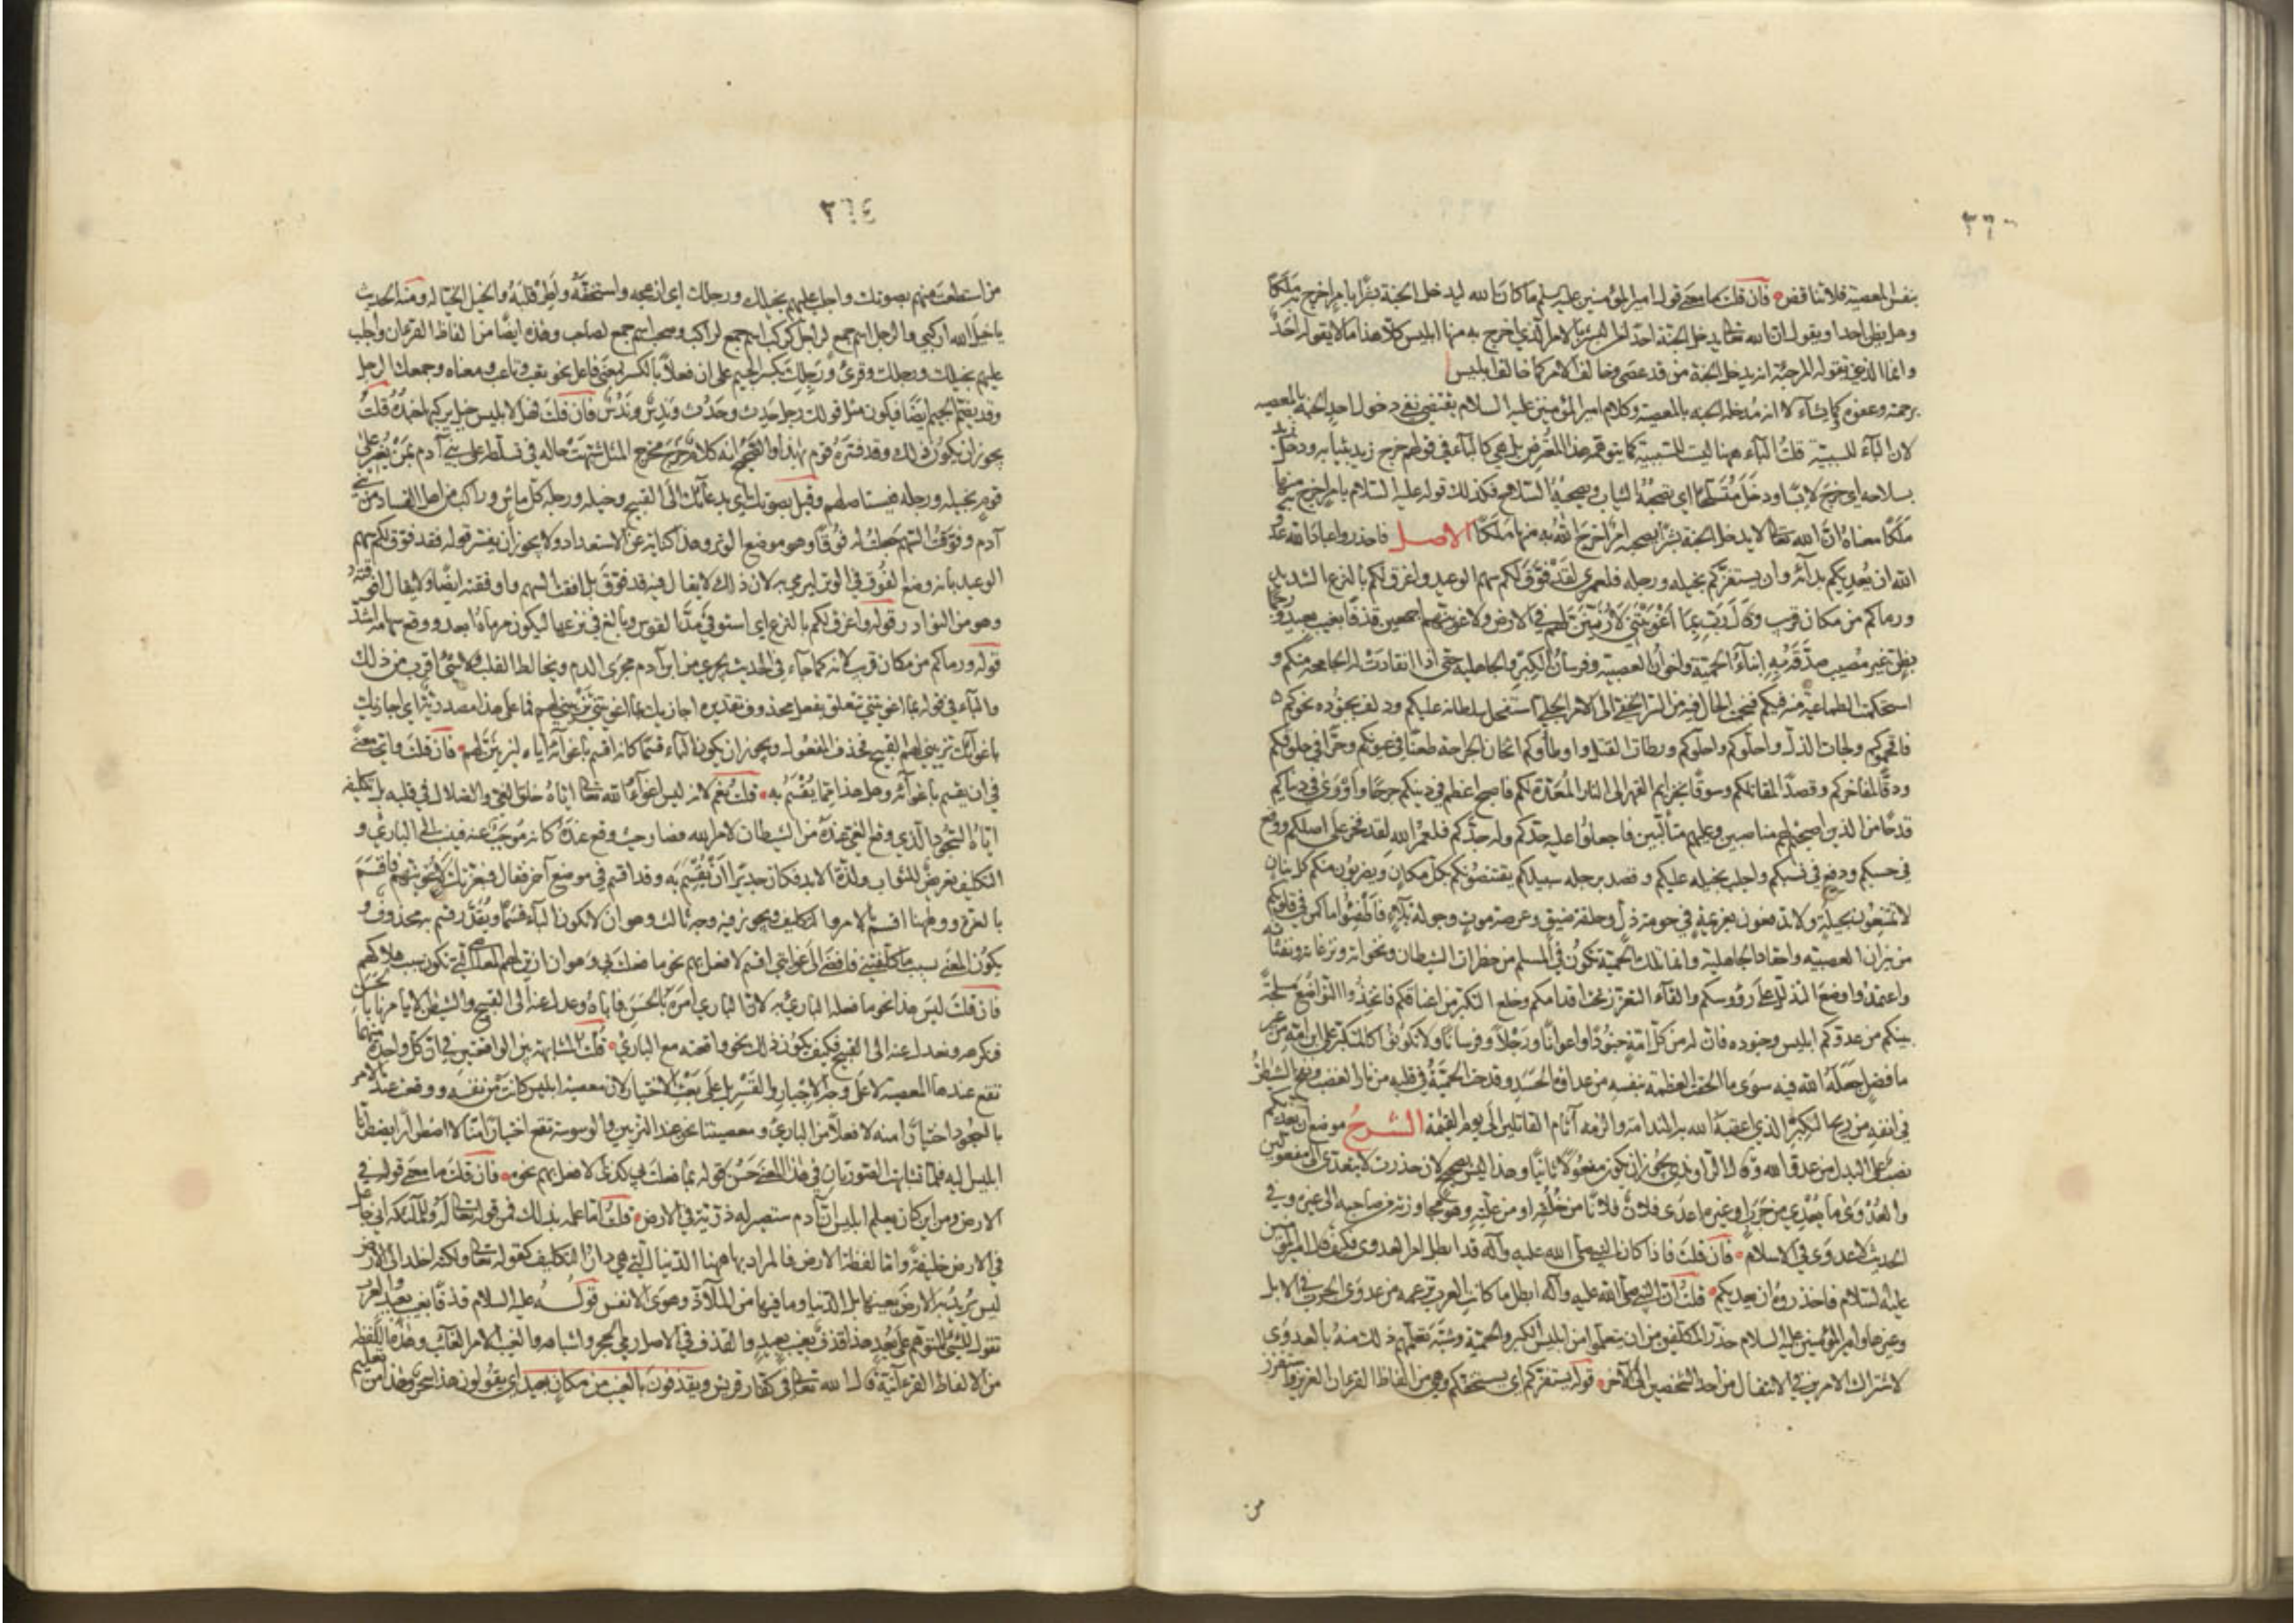 ٣٦٣
بنفس المعصية فلا تناقض فان قلت ما معنى قول امير المؤمنين عليه السلم ما كان الله ليدخل الجنة بشرا بامر اخرج به ملكا
وهل يظن احد او يقول ان الله تعالى يدخل الجنة احدا من البشر بالامر الذي اخرج به منها ابليس كلا هذا ما لا يقوله احد
وانما الذي تقوله المرجئة انه يدخل الجنة من قد عصى وخالف الامر كما خالف ابليس
برحمته وعفوه كما يشاء لا انه يدخله الجنة بالمعصية وكلام امير المؤمنين عليه السلام يقتضي نفي دخول احد الجنة بالمعصية
لان الباء للسببية قلت الباء ههنا ليست للسببية كما يتوهمه هذا المعترض بل هي كالباء في قولهم خرج زيد بثيابه ودخل زيد
بسلاحه اي خرج لابسا ودخل متسلحا اي يصحبه الثياب ويصحبه السلاح فكذلك قوله عليه السلام بامر اخرج به منها
ملكا معناه ان الله تعالى لا يدخل الجنة بشرا يصحبه امر اخرج الله به منها ملكا الاصل فاحذروا عباد الله عدو
الله ان يعديكم بدائه وان يستفزكم بخيله ورجله فلعمري لقد فوق لكم سهم الوعيد واغرق لكم بالنزع الشديد
ورماكم من مكان قريب وقال رب بما اغويتني لازينن لهم في الارض ولاغوينهم اجمعين قذفا بغيب بعيد ورجما
بظن غير مصيب صدقه به ابناء الحمية واخوان العصبية وفرسان الكبر والجاهلية حتى اذا انقادت له الجامحة منكم و
استحكمت الطماعية منه فيكم فنجمت الحال فيه من السر الخفي الى الامر الجلي استفحل سلطانه عليكم ودلف بجنوده نحوكم
فاقحموكم ولجات الذل واحلوكم ورطات القتل واوطأوكم اثخان الجراحة طعنا في عيونكم وحزا في حلوقكم
ودقا لمناخركم وقصدا لمقاتلكم وسوقا بخزايم القهر الى النار المعدة لكم فاصبح اعظم في دينكم جرحا واورى في دنياكم
قدحا من الذين اصبحتم لهم مناصبين وعليهم متألبين فاجعلوا عليه حدكم وله جدكم فلعمر الله لقد فخر على اصلكم ووقع
في حسبكم ودفع في نسبكم واجلب بخيله عليكم وقصد برجله سبيلكم يقتنصونكم بكل مكان ويضربون منكم كل بنان
لا تمتنعون بحيلة ولا تدفعون بعزيمة في حومة ذل وحلقة ضيق وعرصة موت وجولة بلاء فاطفئوا ما كمن في قلوبكم
من نيران العصبية واحقاد الجاهلية وانما تلك الحمية تكون في المسلم من خطرات الشيطان ونخواته ونزغاته ونفثاته
واعتمدوا وضع التذلل على رؤوسكم والقاء التعزز تحت اقدامكم وخلع التكبر من اعناقكم فاتخذوا التواضع مسلحة
بينكم من عدوكم ابليس وجنوده فان له من كل امة جنودا واعوانا ورجلا وفرسانا ولا تكونوا كالمتكبر على ابن امه من غير
ما فضل جعله الله فيه سوى ما الحقت العظمة بنفسه من عداوة الحسد وقدحت الحمية في قلبه من نار الغضب ونفخ الشيطان
في انفه من ريح الكبر الذي اعقبه الله به الندامة والزمه آثام القاتلين الى يوم القيمة الشرح موضع ان يعديكم
نصب على البدل من عدو الله وقال الراوندي يجوز ان يكون مفعولا ثانيا وهذا ليس بصحيح لان حذرت لا يتعدى الى مفعولين
والعدوى ما يعدي من جرب او غيره اعدى فلان فلانا من خلقه او من علته وهو مجاوزته من صاحبه الى غيره وفي
الحديث لا عدوى في الاسلام فان قلت فاذا كان النبي صلى الله عليه وآله قد ابطل امر العدوى فكيف قال امير المؤمنين
عليه السلام فاحذروه ان يعديكم قلت ان النبي صلى الله عليه وآله ابطل ما كانت العرب تزعمه من عدوى الجرب في الابل
وغيرها وامير المؤمنين عليه السلام حذر المكلفين من ان يتعلموا من ابليس الكبر والحمية وشبه تعلمهم ذلك منه بالعدوى
لاشتراك الامرين في الانتقال من احد الشخصين الى الآخر قوله يستفزكم اي يستخفكم وهي من الفاظ القرءان العزيز واستفزز
من
٣٦٤
من استطعت منهم بصوتك واجلب عليهم بخيلك ورجلك اي ازعجه واستخفه واطر قلبه والخيل الخيالة ومنه الحديث
يا خيل الله اركبي والرجل اسم جمع لراجل كركب اسم جمع لراكب وصحب اسم جمع لصاحب وهذه ايضا من الفاظ القرءان واجلب
عليهم بخيلك ورجلك وقرئ ورجلك بكسر الجيم على ان فعلا بالكسر بمعنى فاعل نحو تعب وتاعب ومعناه وجمعك الرجل
وقد يضم الجيم ايضا فيكون مثل قولك رجل حدث وحدث وندس وندس فان قلت فهل لابليس خيل يركبها جنده قلت
يجوز ان يكون ذلك وقد فسره قوم بهذا والصحيح انه كلام خرج مخرج المثل شبهت حاله في تسلطه على بني آدم بمن يغير على
قوم بخيله ورجله فيستاصلهم وقيل بصوتك اي بدعائك الى القبيح وخيله ورجله كل ماش وراكب من اهل الفساد من بني
آدم وفوقت السهم جعلت له فوقا وهو موضع الوتر وهذا كناية عن الاستعداد ولا يجوز ان يفسر قوله فقد فوق لكم سهم
الوعيد بانه وضع الفوق في الوتر ليرمي به لان ذلك لا يقال فيه قد فوق بل افقت السهم واوفقته ايضا ولا يقال افوقته
وهو من النوادر وقوله واغرق لكم بالنزع اي استوفى مد القوس وبالغ في نزعها ليكون مرماه ابعد ووقع سهامه اشد
قوله ورماكم من مكان قريب لانه كما جاء في الحديث يجري من ابن آدم مجرى الدم ويخالط القلب ولا شئ اقرب من ذلك
والباء في قوله بما اغويتني تتعلق بفعل محذوف تقديره اجازيك بما اغويتني تزييني لهم فما على هذا مصدرية اي اجازيك
باغوائك تزييني لهم القبيح فحذف المفعول ويجوز ان يكون الباء قسما كانه اقسم باغوائه اياه ليزينن لهم فان قلت واي معنى
في ان يقسم باغوائه وهل هذا مما يقسم به قلت نعم لانه ليس اغواء الله تعالى اياه خلق الغي والضلال في قلبه بل تكليفه
اياه السجود الذي وقع الغي عنده من الشيطان لامر الله فصار حيث وقع عنده كانه موجب عنه فنسب الى الباري و
التكليف تعريض للثواب ولذة الابد فكان جديرا ان يقسم به وقد اقسم في موضع آخر فقال فبعزتك لاغوينهم فاقسم
بالعزة وههنا اقسم بالامر والتكليف ويجوز فيه وجه ثالث وهو ان لا تكون الباء قسما ويقدر قسم محذوف و
يكون المعنى بسبب ما كلفتني فافضى الى غوايتي اقسم لافعلن بهم نحو ما فعلت بي وهو ان ازين لهم المعاصي التي تكون سبب هلاكهم
فان قلت ليس هذا نحو ما فعله الباري به لان الباري امره بالحسن فاباه وعدل عنه الى القبيح والشيطان لا يامرنا بالحسن
فنكرهه ونعدل عنه الى القبيح فكيف يكون ذلك نحو واقعته مع الباري قلت المشابهة بين الواقعتين في ان كل واحدة منهما
تقع عندها المعصية لا على وجه الاجبار والقسر بل على سبيل الاختيار لان معصية ابليس كانت من نفسه ووقعت عند الامر
بالسجود اختيارا منه لا فعلا من الباري ومعصيتنا نحن عند التزيين والوسوسة تقع اختيارا منا لا اضطرارا يضطرنا
ابليس اليه فلما تشابهت الصورتان في هذا المعنى حسن قوله بما فعلت بي كذى لافعلن بهم نحوه فان قلت ما معنى قوله في
الارض ومن اين كان يعلم ابليس ان آدم ستصير له ذرية في الارض قلت اما علمه بذلك فمن قوله تعالى له وللملائكة اني جاعل
في الارض خليفة واما لفظة الارض فالمراد بها ههنا الدنيا التي هي دار التكليف كقوله تعالى ولكنه اخلد الى الارض
ليس يريد به الارض بعينها بل الدنيا وما فيها من الملاذ وهوى الانفس قوله عليه السلام قذفا بغيب بعيد والعرب
تقول للشئ المتوهم على بعد هذا قذف بغيب بعيد والقذف في الاصل رمي الحجر واشباهه والغيب الامر الغائب وهذه اللفظة
من الالفاظ القرآنية قال الله تعالى في كفار قريش ويقذفون بالغيب من مكان بعيد اي يقولون هذا سحر وهذا من تعليم